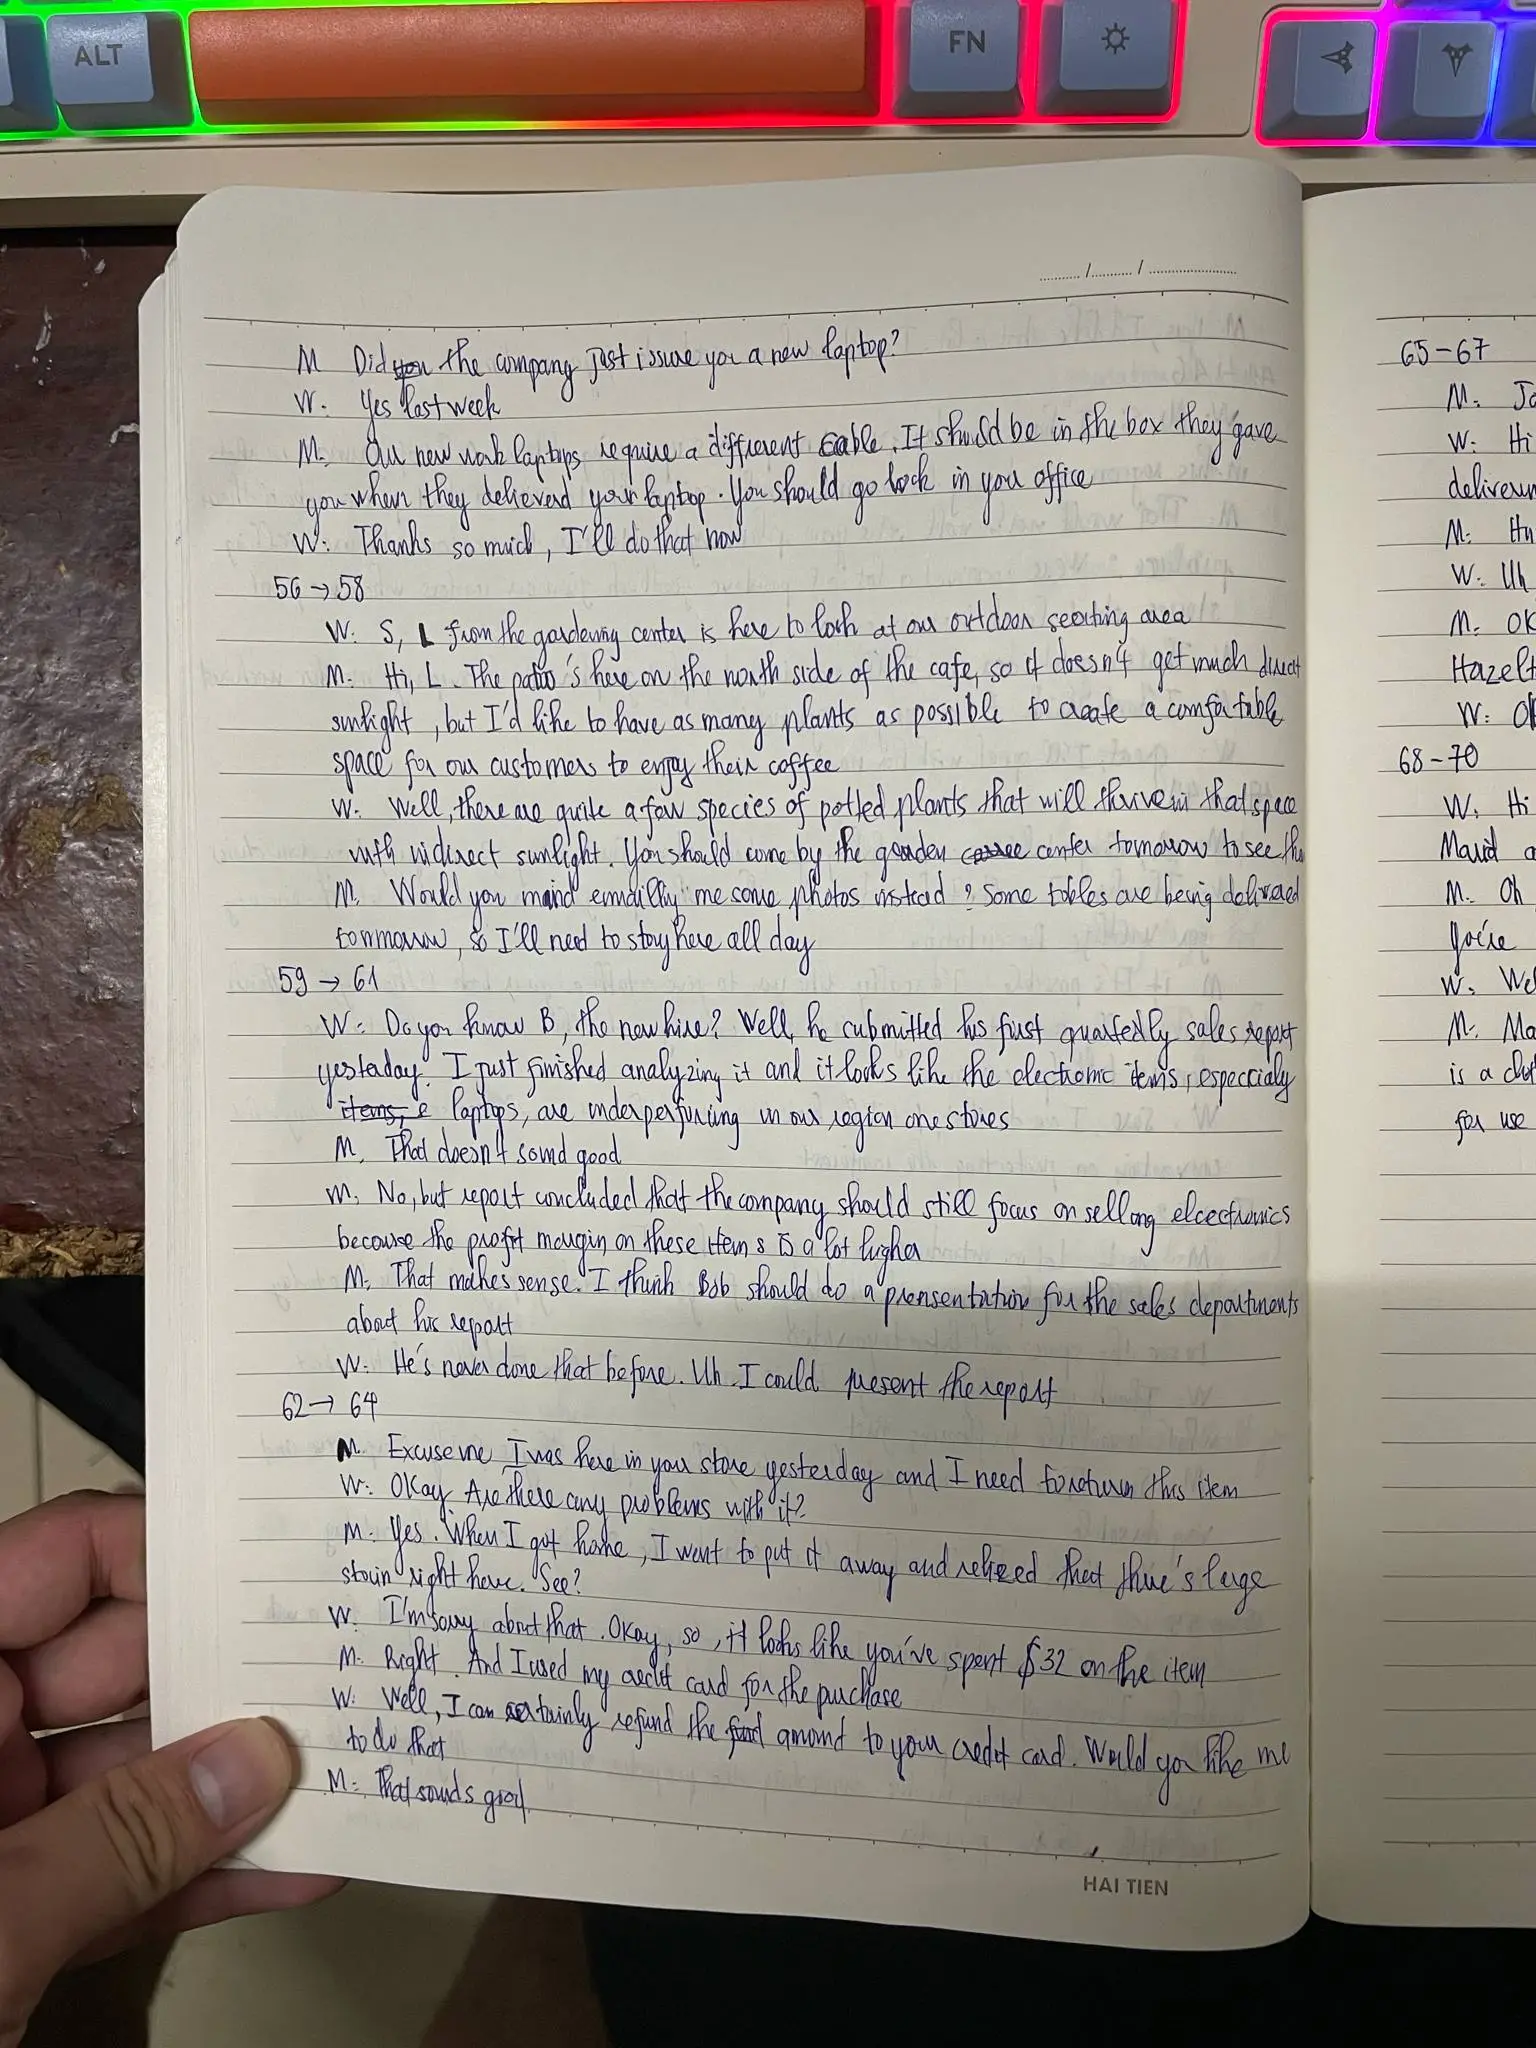 ALT
FN
M Did you the company just issure you a new laptop?
W: Yes last week
M: Our new work laptops require a different cable. It should be in the box they gave
you when they delievered your laptop. You should go look in your office
W: Thanks so much, I'll do that now
56 → 58
W: S, L from the gardening center is here to look at our outdoor seating area
M: Hi, L. The patio's here on the north side of the cafe, so it doesn't get much direct
sunlight, but I'd like to have as many plants as possible to create a comfortable
space for our customers to enjoy their coffee
W: Well, there are quite a few species of potted plants that will thrive in that space
with indirect sunlight. You should come by the garden center tomorrow to see
M: Would you mind emailliy me some photos instead? Some tables are being delivered
tommorow, so I'll need to stay here all day
59 → 61
W: Do you know B, the new hire? Well, he cubmitted his first quartedly sales report
yesterday. I just finished analyzing it and it looks like the electronic items, especcialy
items, e laptops, are underperforming in our region one stores
M, That doesn't sound good
M: No, but report concluded that the company should still focus on sellong elcectronics
because the profit margin on these items is a lot higher
M: That makes sense. I think Bob should do a prensentation for the sales departments
about his report
W: He's never done that before. Uh. I could present the report
62 → 64
M. Excuse me I was here in your store yesterday and I need to return this item
W: Okay Are there any problems with it?
M: Yes. When I got home, I went to put it away and relized that there's large
stain right here. See?
W: I'm sorry about that. Okay, so, it looks like you've spent $32 on the item
M: Right. And I used my credit card for the purchase
W: Well, I can certainly refund the fund amound to your credit card. Would you like me
to do that
M: That sounds good.
HAI TIEN
65-67
M: Jo
W: Hi
deliverin
M: Hu
W: Uh
M: OK
Hazelt
W: Ok
68-70
W: Hi
Mand a
M. Oh
you're
W: We
M: Ma
is a
for use